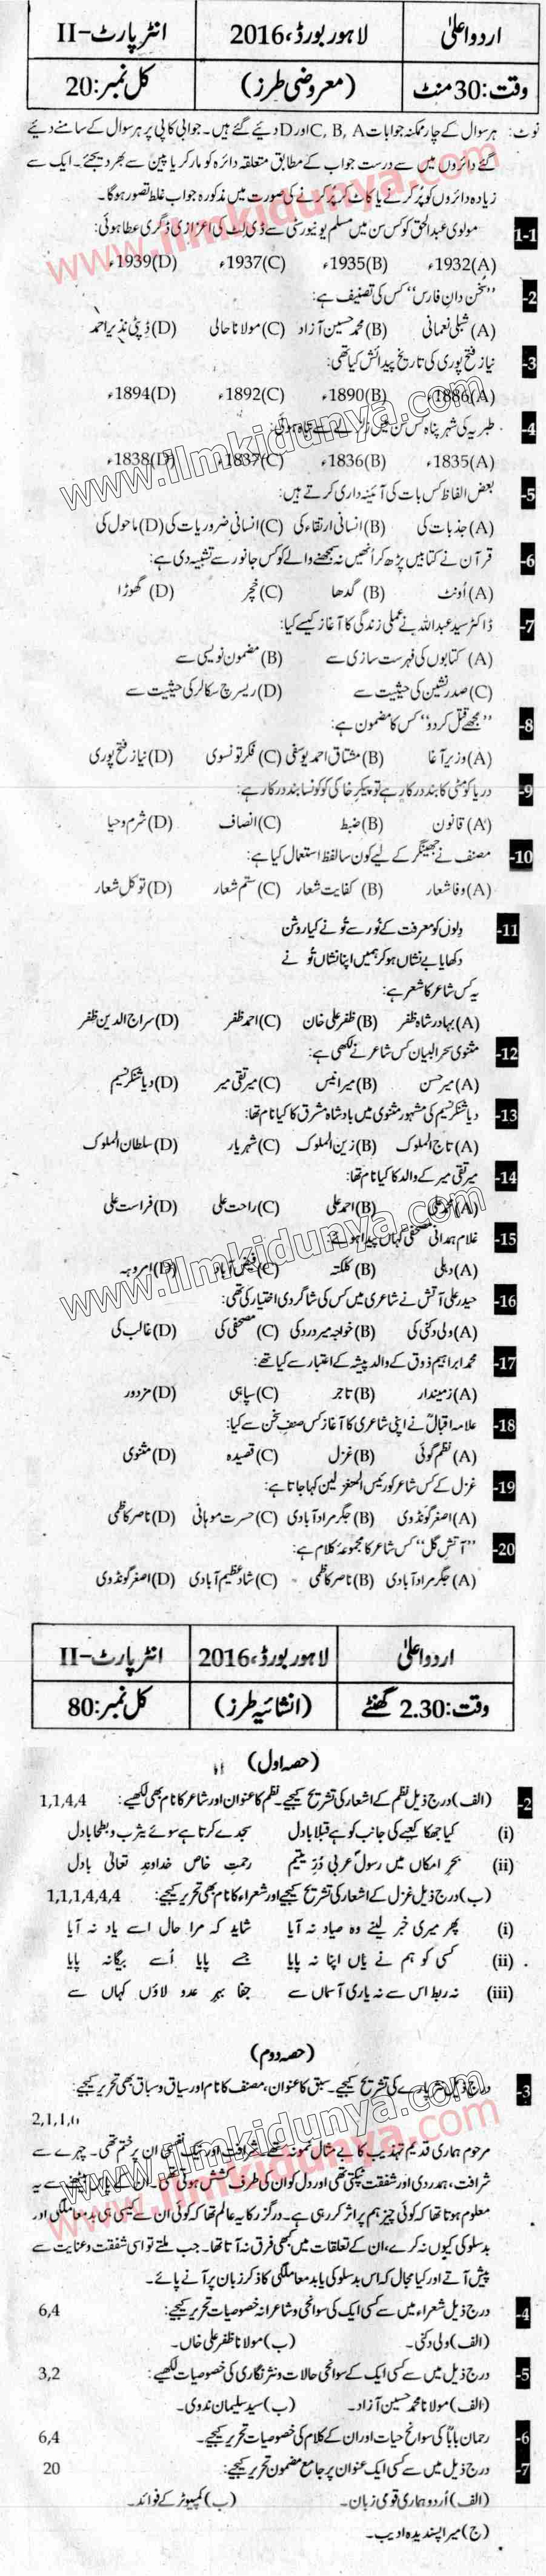 اردو اعلیٰ
لاہور بورڈ، 2016
انٹر پارٹ-II
وقت: 30 منٹ
(معروضی طرز)
کل نمبر: 20
نوٹ: ہر سوال کے چار ممکنہ جوابات C, B, A اور D دیئے گئے ہیں۔ جوابی کاپی پر ہر سوال کے سامنے دیئے
گئے دائروں میں سے درست جواب کے مطابق متعلقہ دائرہ کو مارکر یا پین سے بھر دیجئے۔ ایک سے
زیادہ دائروں کو پُر کرنے یا کاٹ کر پُر کرنے کی صورت میں مذکورہ جواب غلط تصور ہوگا۔
1-1 مولوی عبدالحق کو کس سن میں مسلم یونیورسٹی سے ڈی لٹ کی اعزازی ڈگری عطا ہوئی:
(A) 1932ء (B) 1935ء (C) 1937ء (D) 1939ء
-2 ”سخن دانِ فارس“ کس کی تصنیف ہے:
(A) شبلی نعمانی (B) محمد حسین آزاد (C) مولانا حالی (D) ڈپٹی نذیر احمد
-3 نیاز فتح پوری کی تاریخ پیدائش کیا تھی:
(A) 1886ء (B) 1890ء (C) 1892ء (D) 1894ء
-4 طبریہ کی شہر پناہ کس سن میں زلزلے سے تباہ ہوئی:
(A) 1835ء (B) 1836ء (C) 1837ء (D) 1838ء
-5 بعض الفاظ کس بات کی آئینہ داری کرتے ہیں:
(A) جذبات کی (B) انسانی ارتقاء کی (C) انسانی ضروریات کی (D) ماحول کی
-6 قرآن نے کتابیں پڑھ کر اُنھیں نہ سمجھنے والے کو کس جانور سے تشبیہ دی ہے:
(A) اُونٹ (B) گدھا (C) خچر (D) گھوڑا
-7 ڈاکٹر سید عبداللہ نے عملی زندگی کا آغاز کیسے کیا:
(A) کتابوں کی فہرست سازی سے (B) مضمون نویسی سے
(C) صدر نشین کی حیثیت سے (D) ریسرچ سکالر کی حیثیت سے
-8 ”مجھے قتل کر دو“ کس کا مضمون ہے:
(A) وزیر آغا (B) مشتاق احمد یوسفی (C) فکر تونسوی (D) نیاز فتح پوری
-9 دریا کو مٹی کا بند درکار ہے تو پیکرِ خاکی کو کونسا بند درکار ہے:
(A) قانون (B) ضبط (C) انصاف (D) شرم و حیا
-10 مصنف نے جھینگر کے لیے کون سا لفظ استعمال کیا ہے:
(A) وفا شعار (B) کفایت شعار (C) ستم شعار (D) توکل شعار
-11 دِلوں کو معرفت کے نُور سے تُو نے کیا روشن
دکھایا بے نشاں ہو کر ہمیں اپنا نشاں تُو نے
یہ کس شاعر کا شعر ہے:
(A) بہادر شاہ ظفر (B) ظفر علی خان (C) احمد ظفر (D) سراج الدین ظفر
-12 مثنوی سحرالبیان کس شاعر نے لکھی ہے:
(A) میر حسن (B) میر انیس (C) میر تقی میر (D) دیا شنکر نسیم
-13 دیا شنکر نسیم کی مشہور مثنوی میں بادشاہِ مشرق کا کیا نام تھا:
(A) تاج الملوک (B) زین الملوک (C) شہر یار (D) سلطان الملوک
-14 میر تقی میر کے والد کا کیا نام تھا:
(A) محمد علی (B) احمد علی (C) راحت علی (D) فراست علی
-15 غلام ہمدانی مصحفی کہاں پیدا ہوئے:
(A) دہلی (B) کلکتہ (C) فیض آباد (D) امروہہ
-16 حیدر علی آتش نے شاعری میں کس کی شاگردی اختیار کی تھی:
(A) ولی دکنی کی (B) خواجہ میر درد کی (C) مصحفی کی (D) غالب کی
-17 محمد ابراہیم ذوق کے والد پیشہ کے اعتبار سے کیا تھے:
(A) زمیندار (B) تاجر (C) سپاہی (D) مزدور
-18 علامہ اقبالؒ نے اپنی شاعری کا آغاز کس صنفِ سخن سے کیا:
(A) نظم گوئی (B) غزل (C) قصیدہ (D) مثنوی
-19 غزل کے کس شاعر کو رئیس المتغزلین کہا جاتا ہے:
(A) اصغر گونڈوی (B) جگر مراد آبادی (C) حسرت موہانی (D) ناصر کاظمی
-20 ”آتشِ گل“ کس شاعر کا مجموعہ کلام ہے:
(A) جگر مراد آبادی (B) ناصر کاظمی (C) شاد عظیم آبادی (D) اصغر گونڈوی
اردو اعلیٰ
لاہور بورڈ، 2016
انٹر پارٹ-II
وقت: 2.30 گھنٹے
(انشائیہ طرز)
کل نمبر: 80
(حصہ اول)
-2 (الف) درج ذیل نظم کے اشعار کی تشریح کیجیے۔ نظم کا عنوان اور شاعر کا نام بھی لکھیے: 1,1,4,4
(i) کیا جھکا کعبے کی جانب کو ہے قبلا بادل سجدے کرتا ہے سوئے یثرب و بطحا بادل
(ii) بحرِ امکاں میں رسولِ عربی دُرِّ یتیم رحمتِ خاص خداوندِ تعالیٰ بادل
(ب) درج ذیل غزل کے اشعار کی تشریح کیجیے اور شعراء کا نام بھی تحریر کیجیے: 1,1,1,4,4,4
(i) پھر میری خبر لینے وہ صیاد نہ آیا شاید کہ مرا حال اسے یاد نہ آیا
(ii) کسی کو ہم نے یاں اپنا نہ پایا جسے پایا اُسے بیگانہ پایا
(iii) نہ ربط اس سے نہ یاری آسماں سے جفا بہرِ عدو لاؤں کہاں سے
(حصہ دوم)
-3 درج ذیل نثر پارے کی تشریح کیجیے۔ سبق کا عنوان، مصنف کا نام اور سیاق و سباق بھی تحریر کیجیے:
2,1,1,6
مرحوم ہماری قدیم تہذیب کا بے مثال نمونہ تھے۔ شرافت اور نیک نفسی ان پر ختم تھی۔ چہرے سے
شرافت، ہمدردی اور شفقت ٹپکتی تھی اور دل کو ان کی طرف کشش ہوتی تھی۔ ان کے پاس بیٹھنے سے یہ
معلوم ہوتا تھا کہ کوئی چیز ہم پر اثر کر رہی ہے۔ درگزر کا یہ عالم تھا کہ کوئی ان سے کیسی ہی بدمعاملگی اور
بدسلوکی کیوں نہ کرے، ان کے تعلقات میں کبھی فرق نہ آتا تھا۔ جب ملتے تو اسی شفقت و عنایت سے
پیش آتے اور کیا مجال کہ اس بدسلوکی یا بدمعاملگی کا ذکر زبان پر آنے پائے۔
-4 درج ذیل شعراء میں سے کسی ایک کی سوانحی و شاعرانہ خصوصیات تحریر کیجیے: 6,4
(الف) ولی دکنی۔ (ب) مولانا ظفر علی خاں۔
-5 درج ذیل میں سے کسی ایک کے سوانحی حالات و نثر نگاری کی خصوصیات لکھیے: 3,2
(الف) مولانا محمد حسین آزاد۔ (ب) سید سلیمان ندوی۔
-6 رحمان باباؒ کی سوانح حیات اور ان کے کلام کی خصوصیات تحریر کیجیے۔ 6,4
-7 درج ذیل میں سے کسی ایک عنوان پر جامع مضمون تحریر کیجیے: 20
(الف) اُردو ہماری قومی زبان۔ (ب) کمپیوٹر کے فوائد۔
(ج) میرا پسندیدہ ادیب۔
www.ilmkidunya.com
www.ilmkidunya.com
www.ilmkidunya.com
www.ilmkidunya.com
www.ilmkidunya.com